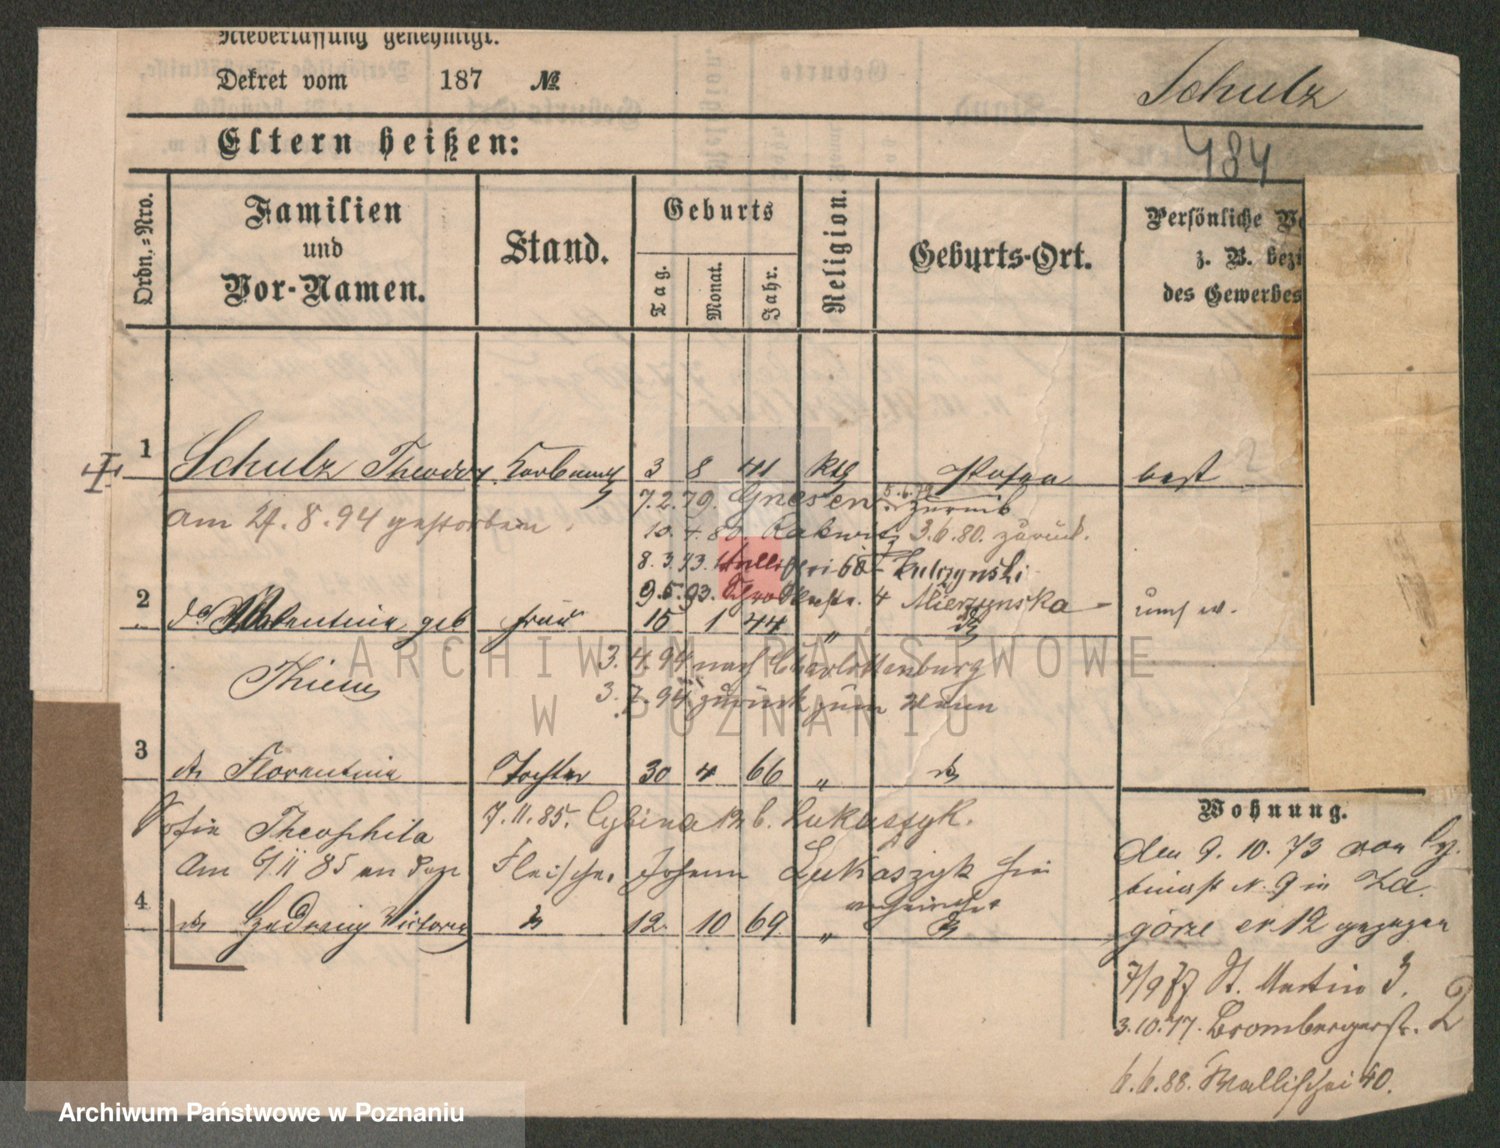 Niederlassung genehmigt.
Dekret vom 187 №
Schulz
484
Eltern heißen:
Ordn.=Nro.
Familien
und
Vor-Namen.
Stand.
Geburts
Tag.
Monat.
Jahr.
Religion.
Geburts-Ort.
Persönliche
z. B.
des Gewerbes
1
Schulz Theodor 3 8 41 Kth Posen
am 27. 8. 94 gestorben.
7.2.79. Gnesen zurück
10.4.80 Rakwitz 3.6.80. zurück.
8.3.93. Wallischei Lulczynski
9.5.93. 4 Mierzynska
2
geb Frau 15 1 44 "
3.4.94 nach Charlottenburg
3.7.94 zurück zum Mann
3
Florentina Tochter 30 4 66 "
Sofia Theophila 7.11.85. Cybina b. Lukaszyk.
am 6/11 85 an den Fleischer Johann Lukaszyk hier
4
Hedwig Victoria 12. 10 69 "
Wohnung.
den 9. 10. 73 von Cy-
binast N. 9 in Za-
gorze 12 gezogen
7/9 77 St. Martin 3.
3.10.77. Brombergerstr. 2
6.6.88. Wallischei 40.
ARCHIWUM PAŃSTWOWE
W POZNANIU
Archiwum Państwowe w Poznaniu